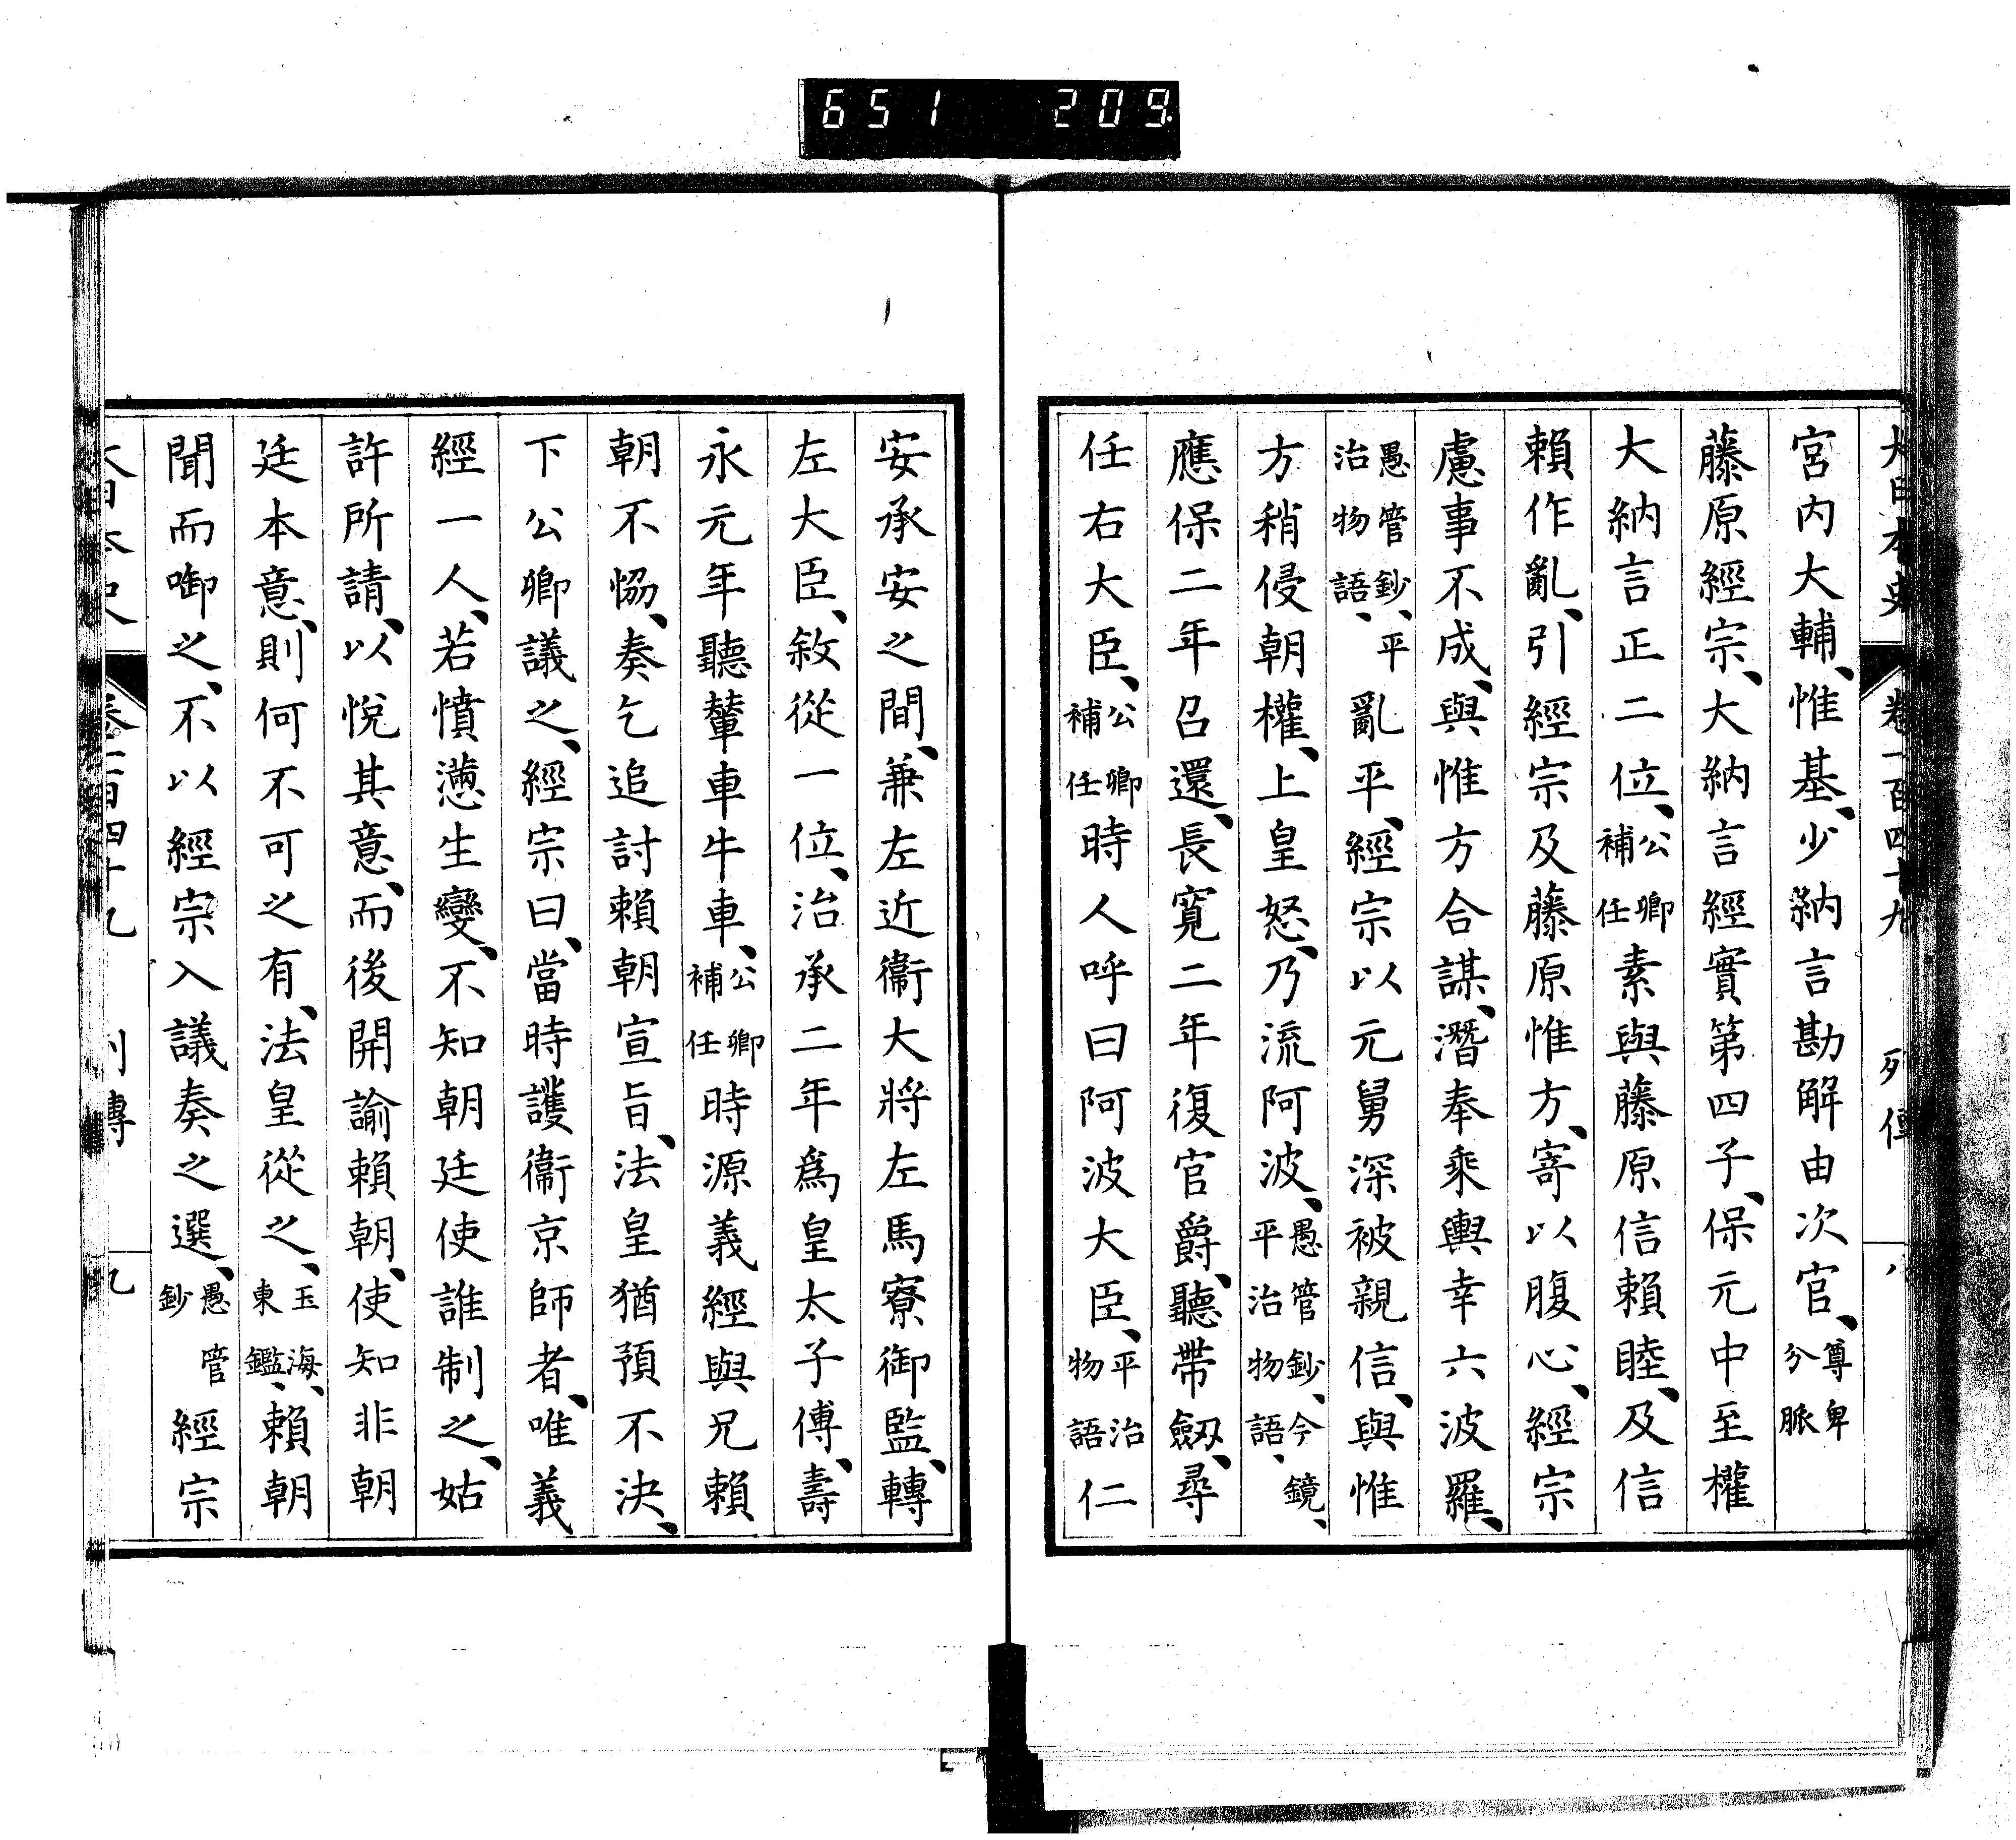 651 209
大日本史 卷一百四十九 列傳 八
宮内大輔、惟基、少納言勘解由次官、尊卑分脈
藤原經宗、大納言經實第四子、保元中至權
大納言正二位、公卿補任素與藤原信賴睦、及信
賴作亂、引經宗及藤原惟方、寄以腹心、經宗
慮事不成、與惟方合謀、潛奉乘輿幸六波羅、
愚管鈔、平治物語、亂平、經宗以元舅深被親信、與惟
方稍侵朝權、上皇怒、乃流阿波、愚管鈔、今鏡、平治物語、
應保二年召還、長寬二年復官爵、聽帶劔、尋
任右大臣、公卿補任時人呼曰阿波大臣、平治物語仁
安承安之間、兼左近衞大將左馬寮御監、轉
左大臣、敘從一位、治承二年爲皇太子傅、壽
永元年聽輦車牛車、公卿補任時源義經與兄賴
朝不恊、奏乞追討賴朝宣旨、法皇猶預不決、
下公卿議之、經宗曰、當時護衞京師者、唯義
經一人、若憤懣生變、不知朝廷使誰制之、姑
許所請、以悅其意、而後開諭賴朝、使知非朝
廷本意、則何不可之有、法皇從之、玉海、東鑑、賴朝
聞而啣之、不以經宗入議奏之選、愚管鈔經宗
大日本史 卷一百四十九 列傳 九